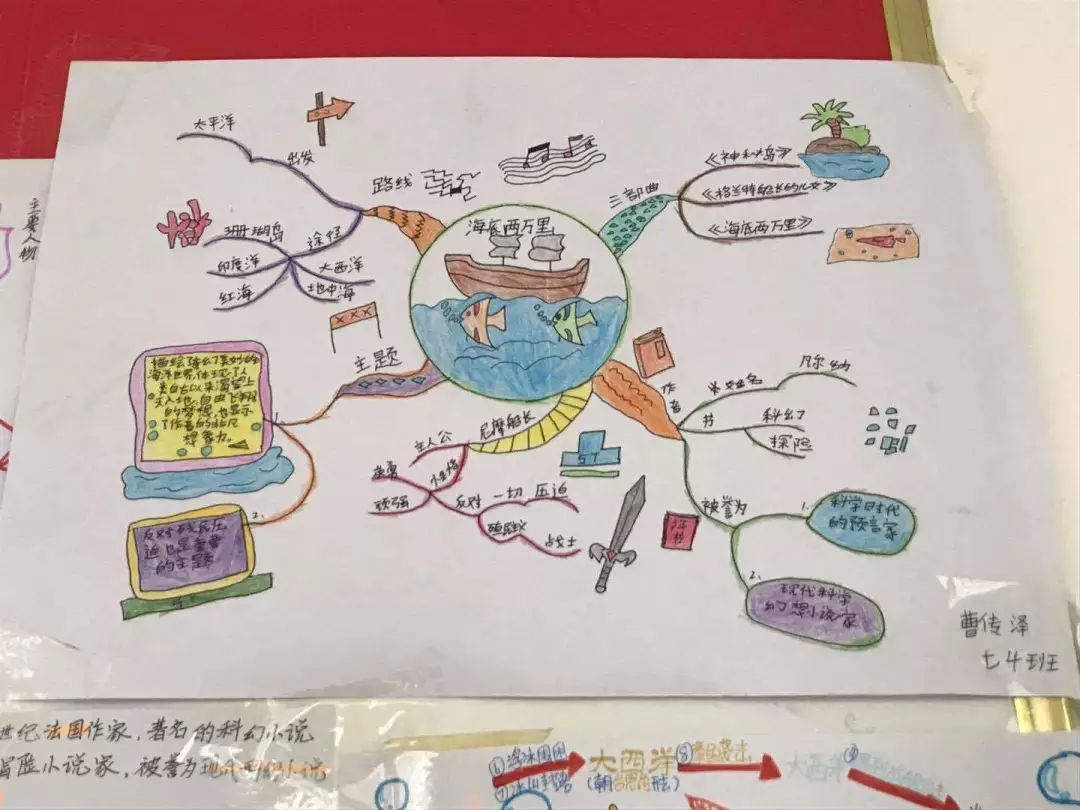 海底两万里
路线
出发
太平洋
途径
珊瑚岛
印度洋
红海
大西洋
地中海
三部曲
《神秘岛》
《格兰特船长的儿女》
《海底两万里》
主题
1.
描绘了美妙的
海洋世界体现了人
类自古以来渴望上
天入地、自由飞翔
的梦想,也显示
了作者的非凡
想象力。
2.
反对殖民压
迫也是重要
的主题
尼摩船长
主人公
性格
英勇
顽强
反对
一切
压迫
殖民
战士
作者
姓名
凡尔纳
书
科幻
探险
被誉为
1.
科学时代
的预言家
2.
现代科学
幻想小说家
曹传泽
七4班
主要人物
世纪法国作家,著名的科幻小说
冒险小说家,被誉为现代
⑥
⑦冰山封路
大西洋
⑧
大西洋
⑨